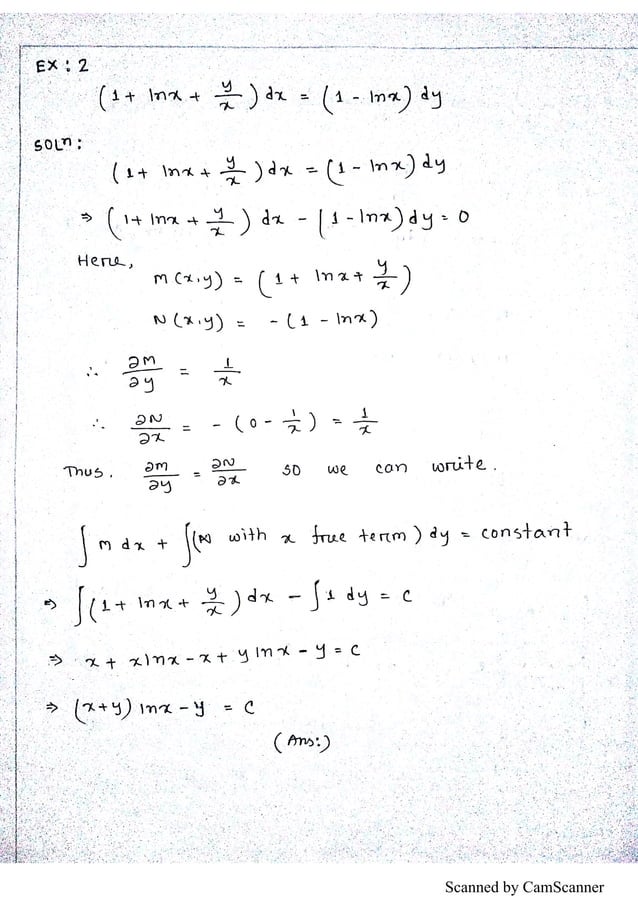 EX : 2
(1 + lnx + y/x) dx = (1 - lnx) dy
SOLn :
(1 + lnx + y/x) dx = (1 - lnx) dy
⇒ (1 + lnx + y/x) dx - (1 - lnx) dy = 0
Here,
M(x,y) = (1 + lnx + y/x)
N(x,y) = - (1 - lnx)
∴ ∂M/∂y = 1/x
∴ ∂N/∂x = - (0 - 1/x) = 1/x
Thus. ∂M/∂y = ∂N/∂x so we can write.
∫ M dx + ∫(N with x free term) dy = constant
⇒ ∫(1 + lnx + y/x) dx - ∫1 dy = c
⇒ x + xlnx - x + y lnx - y = c
⇒ (x+y) lnx - y = c
(Ans:)
Scanned by CamScanner